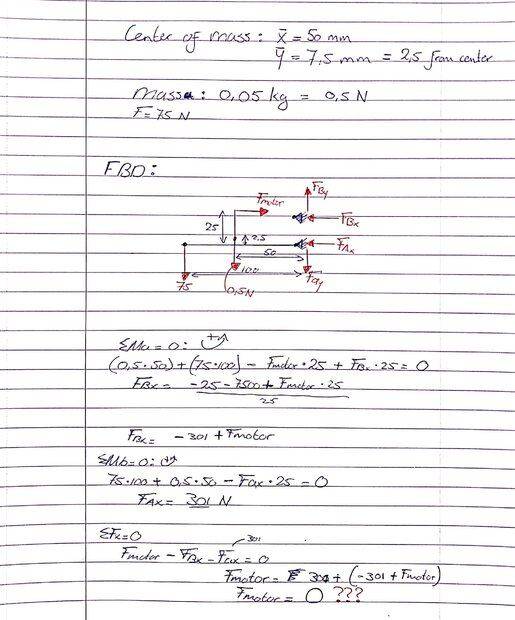 Center of mass: x̄ = 50 mm
ȳ = 7,5 mm = 2,5 from center
massa: 0,05 kg = 0,5 N
F = 75 N
FBD:
Fmotor
FBy
FBx
25
2.5
FAx
50
100
75
0,5N
Fay
ΣMa = 0: +
(0,5 · 50) + (75 · 100) - Fmotor · 25 + FBx · 25 = 0
FBx = -25 - 7500 + Fmotor · 25
25
FBx = -301 + Fmotor
ΣMb = 0: +
75 · 100 + 0,5 · 50 - Fax · 25 = 0
FAx = 301 N
ΣFx = 0
301
Fmotor - FBx - Fax = 0
Fmotor = 301 + (-301 + Fmotor)
Fmotor = 0 ???